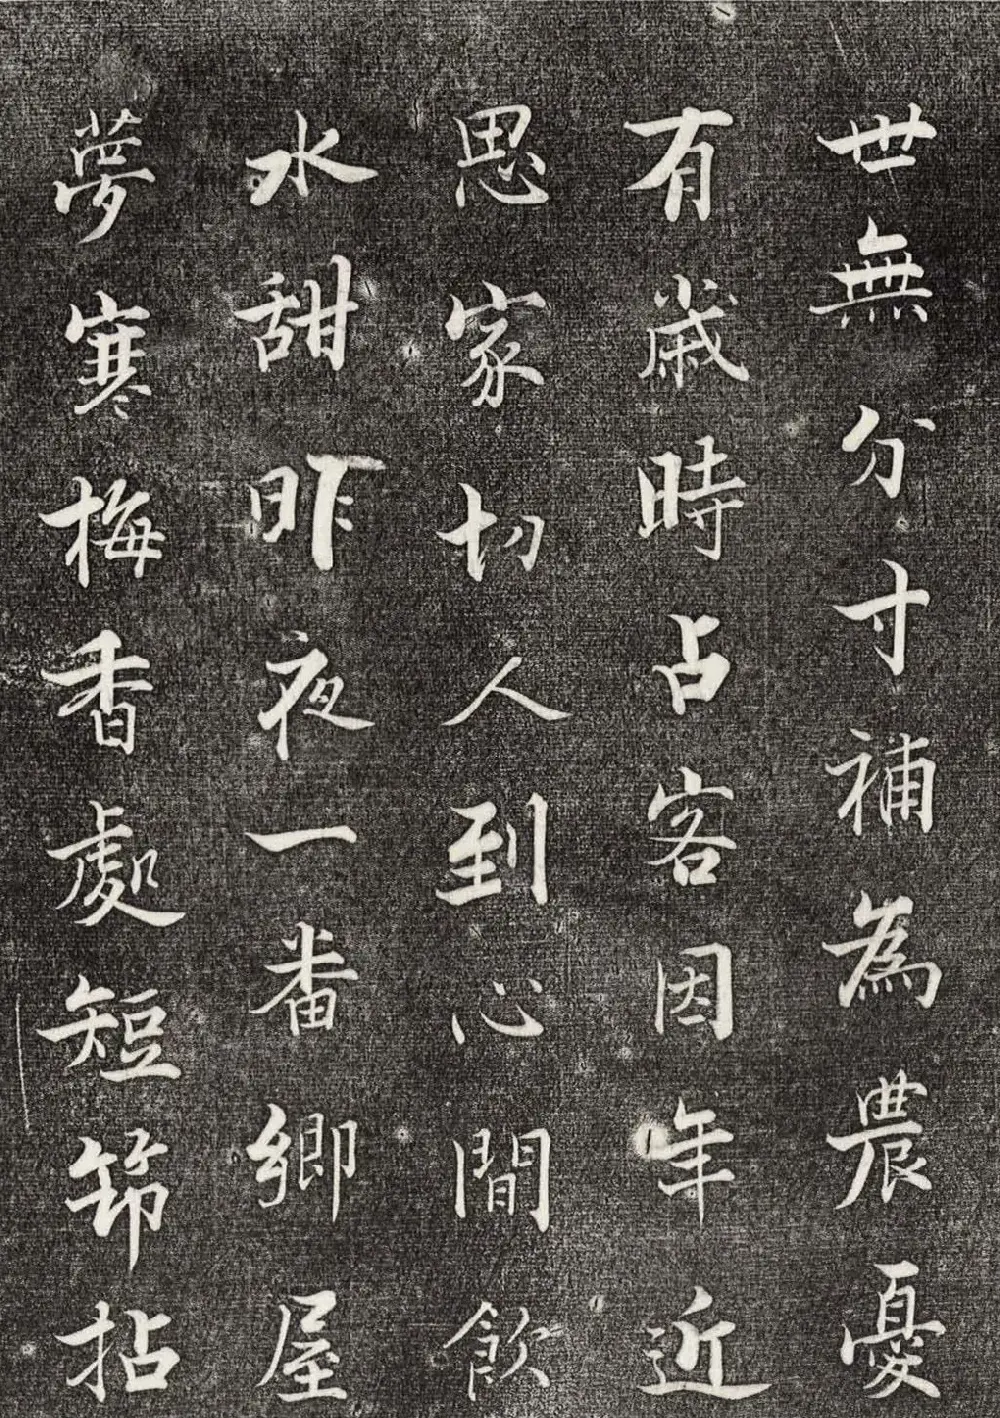 世無分寸補為農憂
有歲時占客因年近
思家切人到心間飲
水甜昨夜一番鄉屋
夢寒梅香處短筇拈